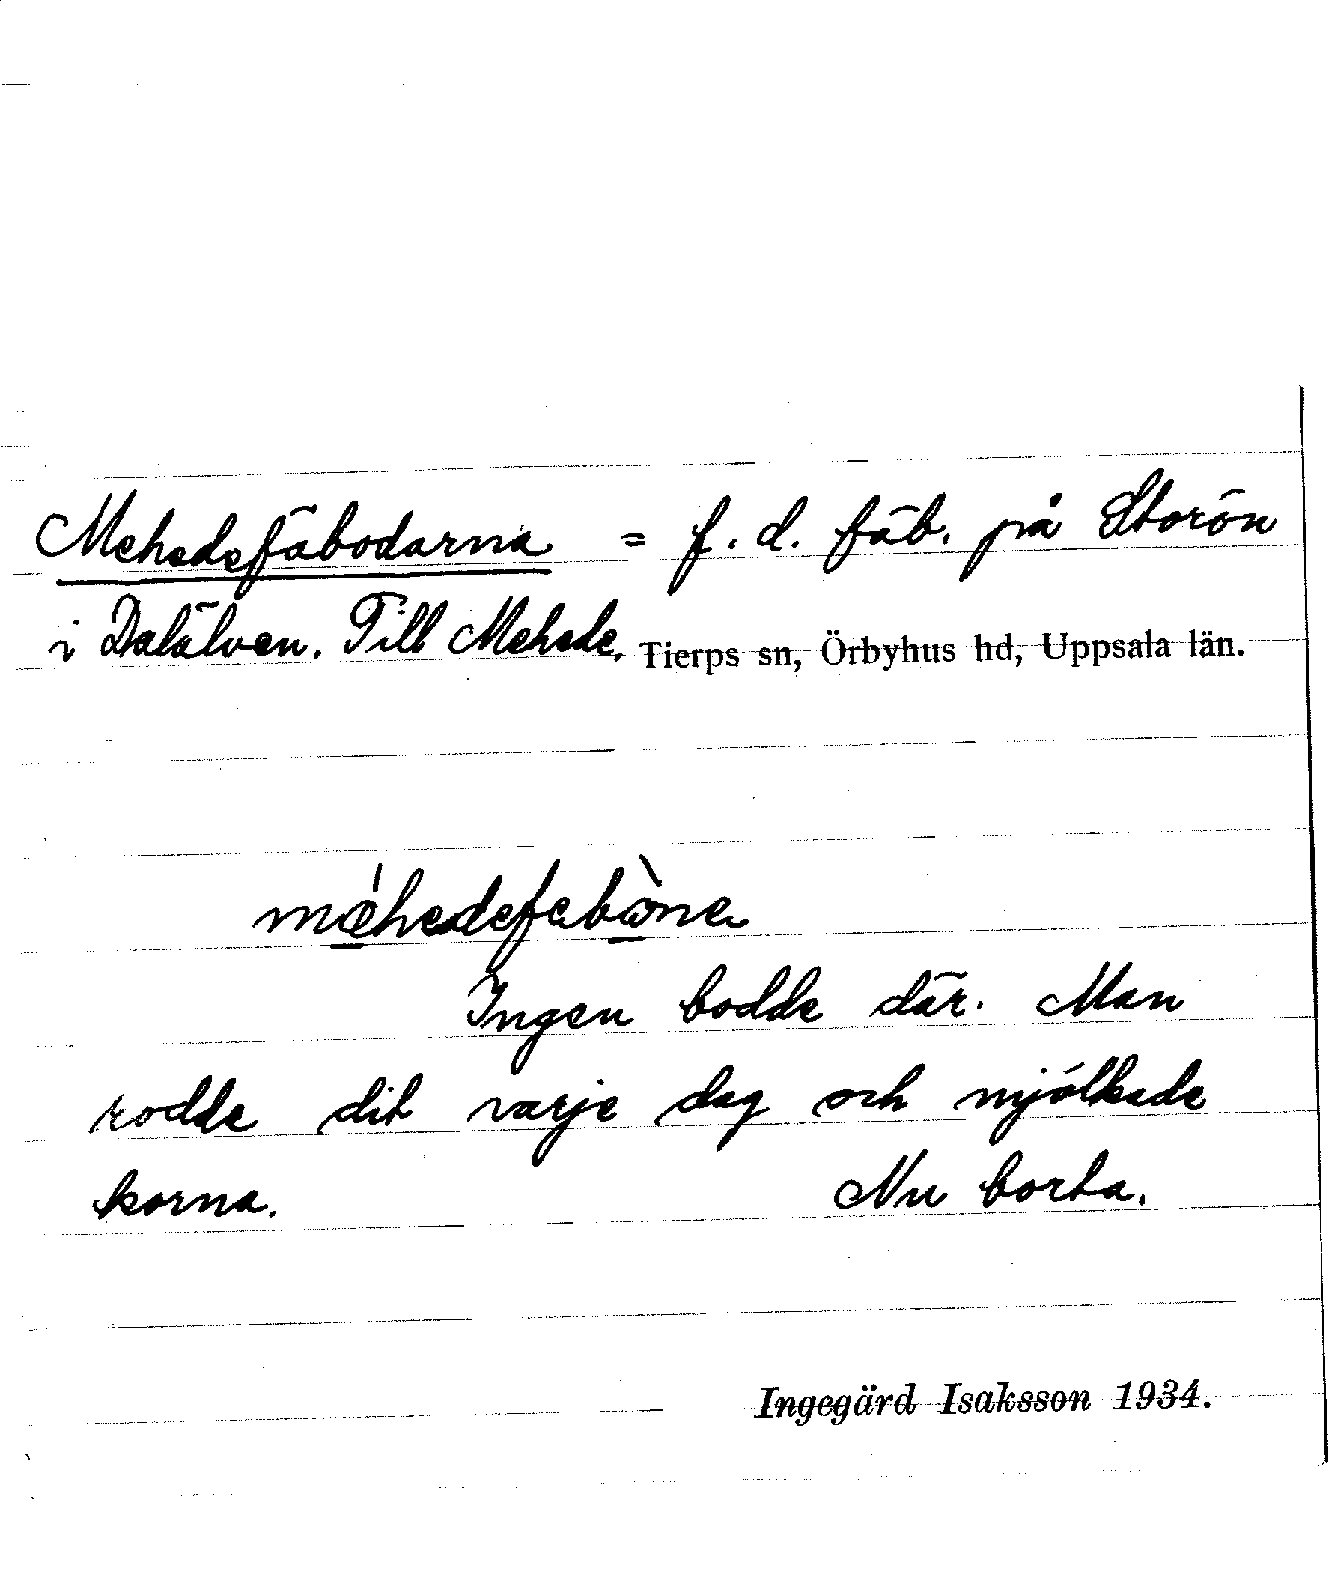 Mehedsfäbodarna = f. d. fäb. på Storön
i Dalälven. Till Mehede. Tierps sn, Örbyhus hd, Uppsala län.
mèhedefebòne
Ingen bodde där. Man
rodde dit varje dag och mjölkade
korna. Nu borta.
Ingegärd Isaksson 1934.